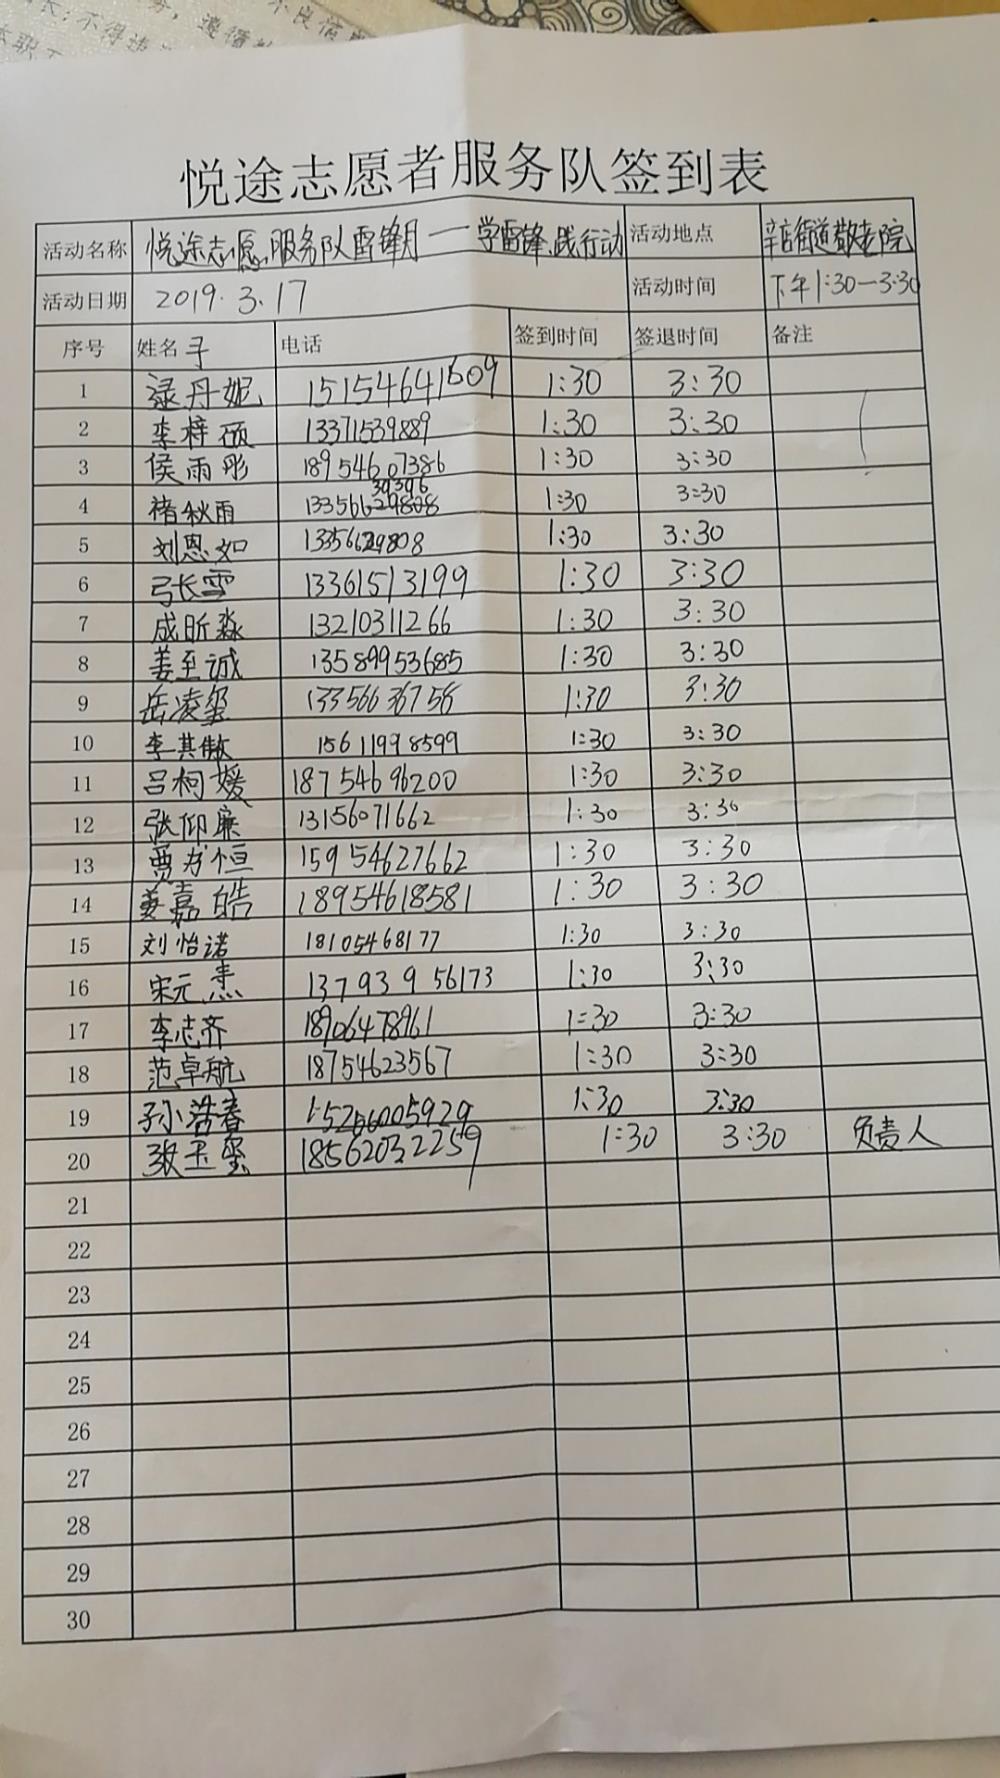 悦途志愿者服务队签到表
活动名称 悦途志愿服务队雷锋月——学雷锋、践行动 活动地点 辛店街道敬老院
活动日期 2019.3.17 活动时间 下午1:30—3:30
序号 姓名 电话 签到时间 签退时间 备注
1 逯丹妮 15154641609 1:30 3:30
2 李梓硕 13371539889 1:30 3:30
3 侯雨彤 18954607386 1:30 3:30
4 褚秋雨 1:30 3:30
5 刘恩如 13356629808 1:30 3:30
6 张雪 13361513199 1:30 3:30
7 成昕淼 13210311266 1:30 3:30
8 姜至诚 13589953685 1:30 3:30
9 岳凌玺 13356636758 1:30 3:30
10 李其傲 15611998599 1:30 3:30
11 吕柯媛 18754696200 1:30 3:30
12 张仰廉 13156071662 1:30 3:30
13 贾 恒 15954627662 1:30 3:30
14 姜嘉皓 18954618581 1:30 3:30
15 刘怡诺 18105468177 1:30 3:30
16 宋元焘 13793956173 1:30 3:30
17 李志齐 18906478961 1:30 3:30
18 范卓航 18754623567 1:30 3:30
19 孙浩春 15266005929 1:30 3:30
20 张玉玺 18562032259 1:30 3:30 负责人
21
22
23
24
25
26
27
28
29
30